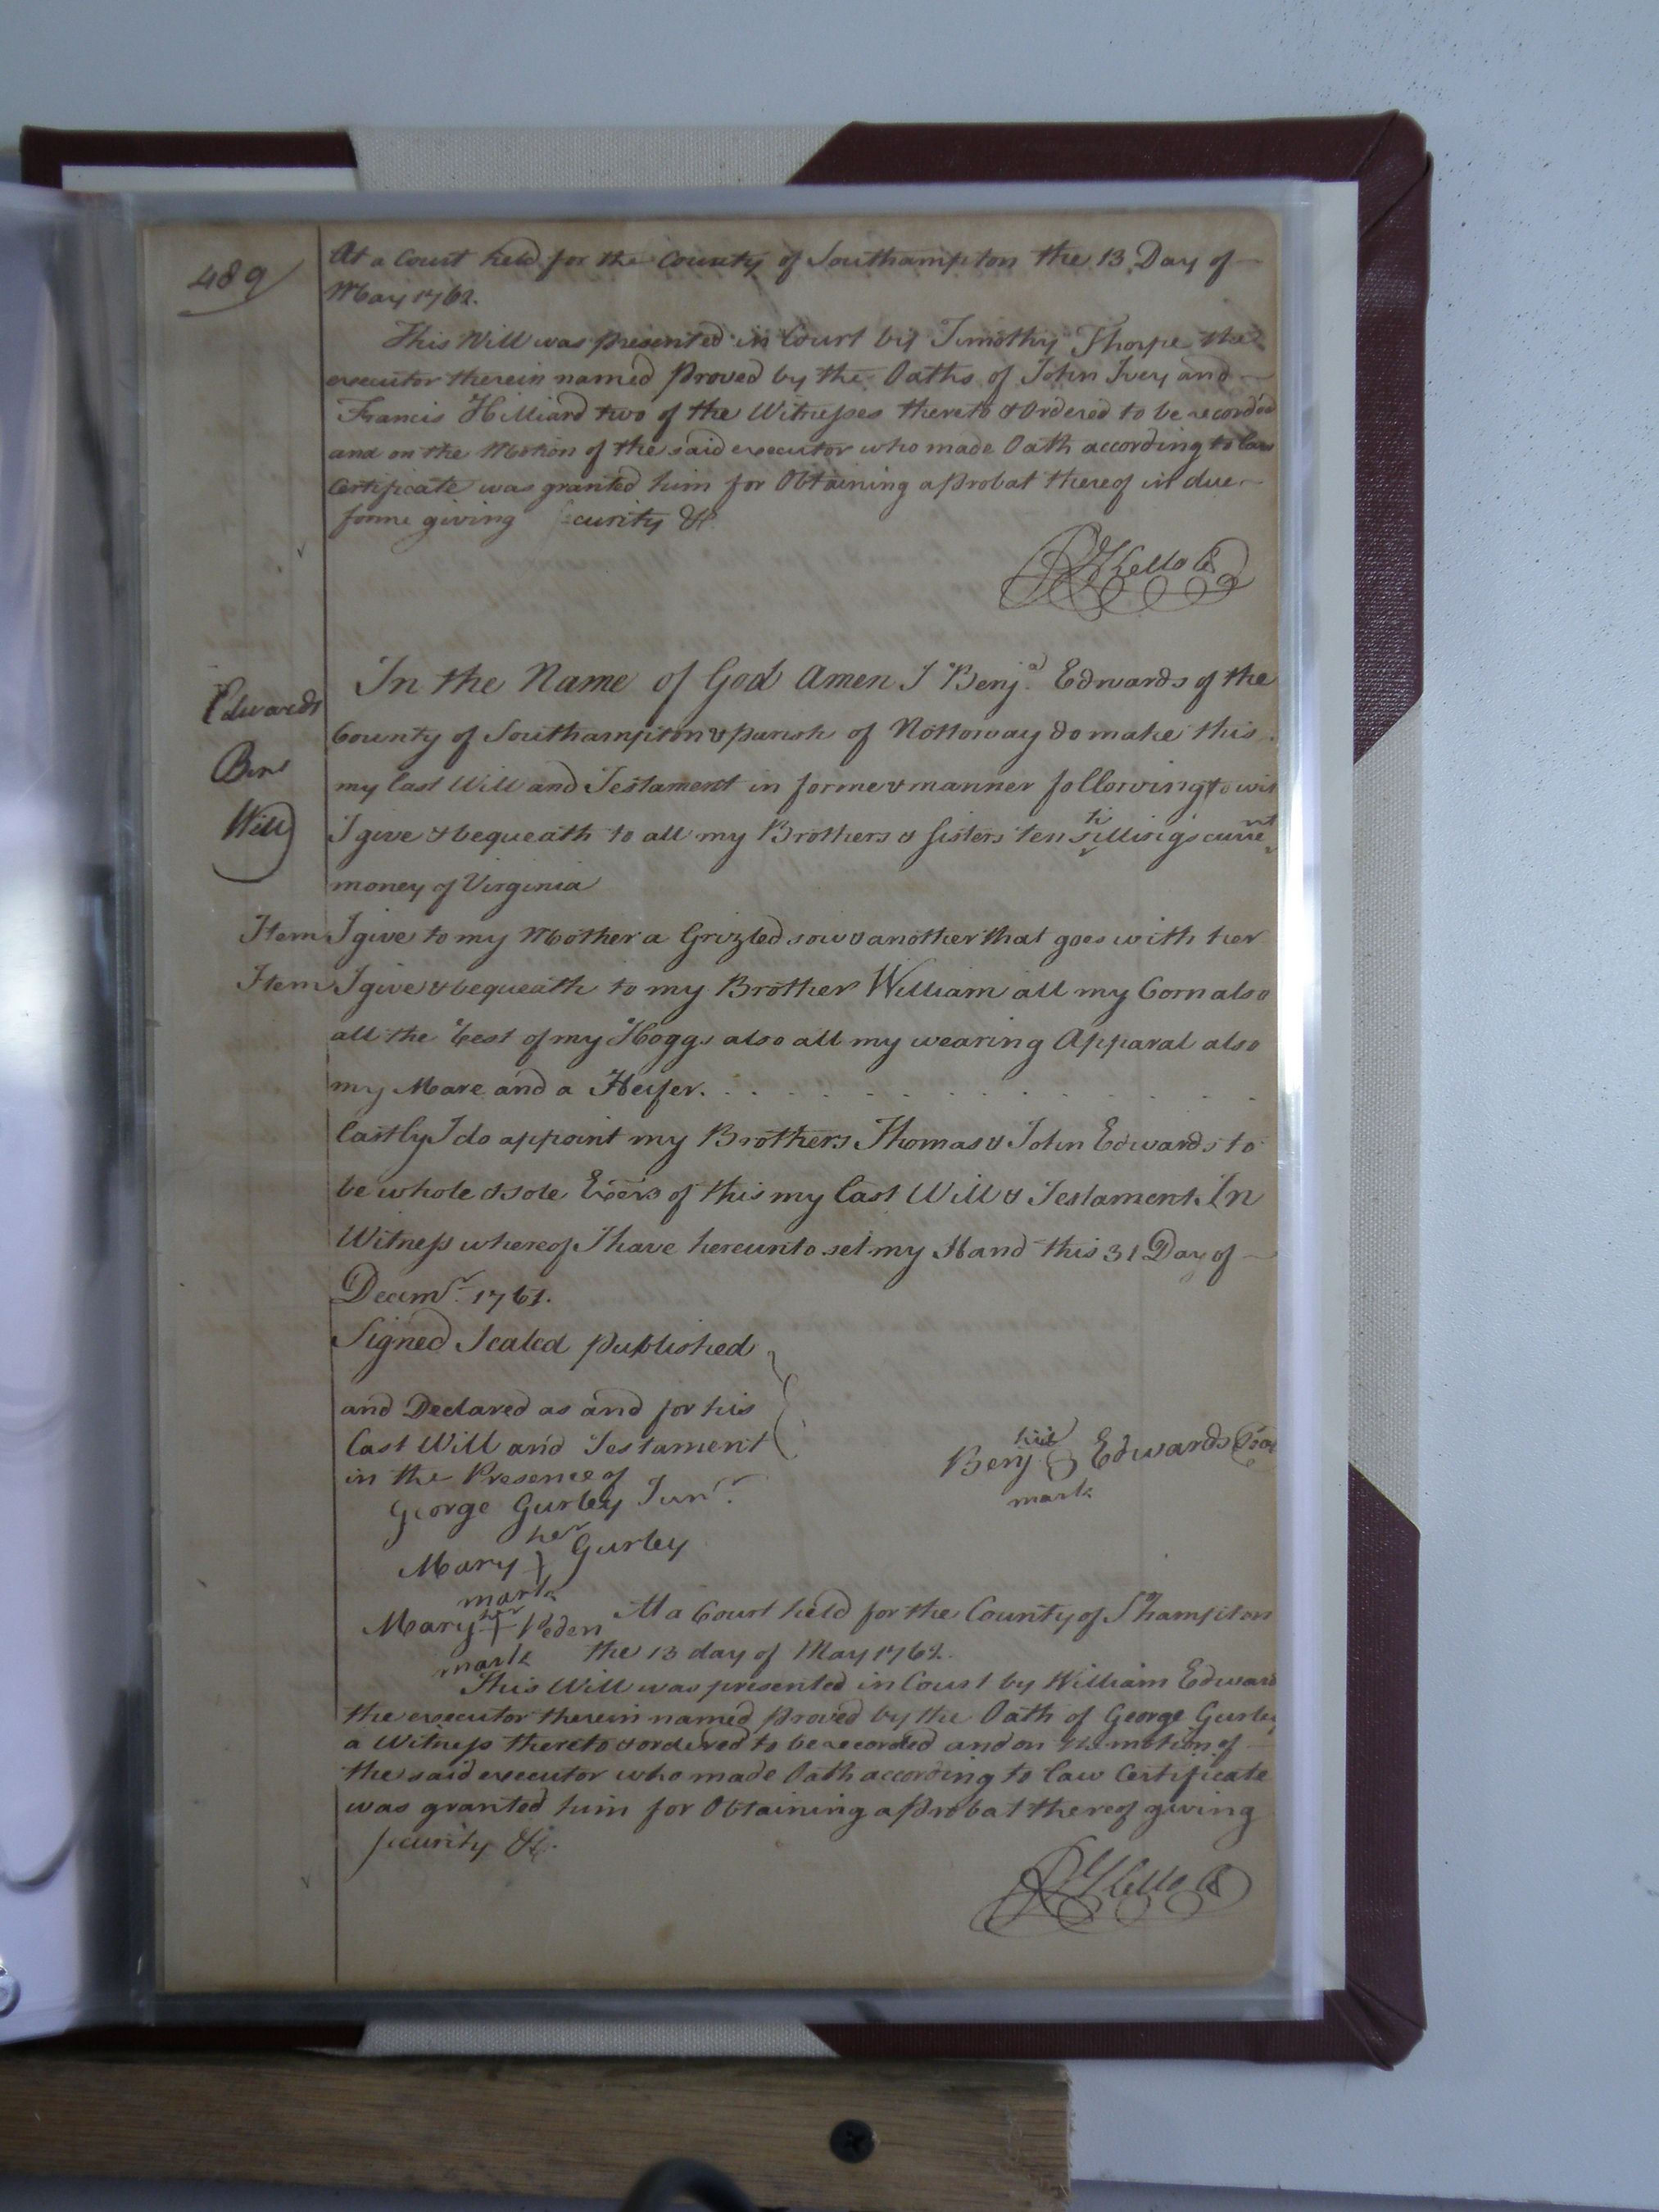 489
At a Court held for the County of Southampton the 13 Day of
May 1762.
This Will was presented in Court by Timothy Thorpe the
executor therein named proved by the Oaths of John Ivey and
Francis Hilliard two of the Witnesses thereto & Ordered to be recorded
and on the Motion of the said executor who made Oath according to Law
Certificate was granted him for Obtaining a probat thereof in due
forme giving curity &c
Edwards
Ben
Will
In the Name of God Amen I Benj.a Edwards of the
County of Southampton & parish of Nottoway do make this
my last Will and Testament in forme & manner following to wit
I give & bequeath to all my Brothers & Sisters ten shillings curre nt
money of Virginia
Item I give to my Mother a Grizled sow & another that goes with her
Item I give & bequeath to my Brother William all my Corn also
all the Rest of my Hoggs also all my wearing Apparal also
my Mare and a Heifer.
Lastly I do appoint my Brothers Thomas & John Edwards to
be whole & sole Exers of this my Last Will & Testament. In
Witness whereof I have hereunto set my Hand this 31 Day of
Decemr. 1761.
Signed Sealed published
and Declared as and for his
Last Will and Testament
in the Presence of
his
Benj Edwards
mark
George Gurley Junr.
her
Mary Gurley
mark
her
Mary + Peden
mark
At a Court held for the County of S'hampton
the 13 day of May 1762.
This Will was presented in Court by William Edward
the executor therein named proved by the Oath of George Gurley
a Witness thereto & ordered to be recorded and on the motion of
the said executor who made Oath according to Law Certificate
was granted him for Obtaining a probat thereof giving
security &c.